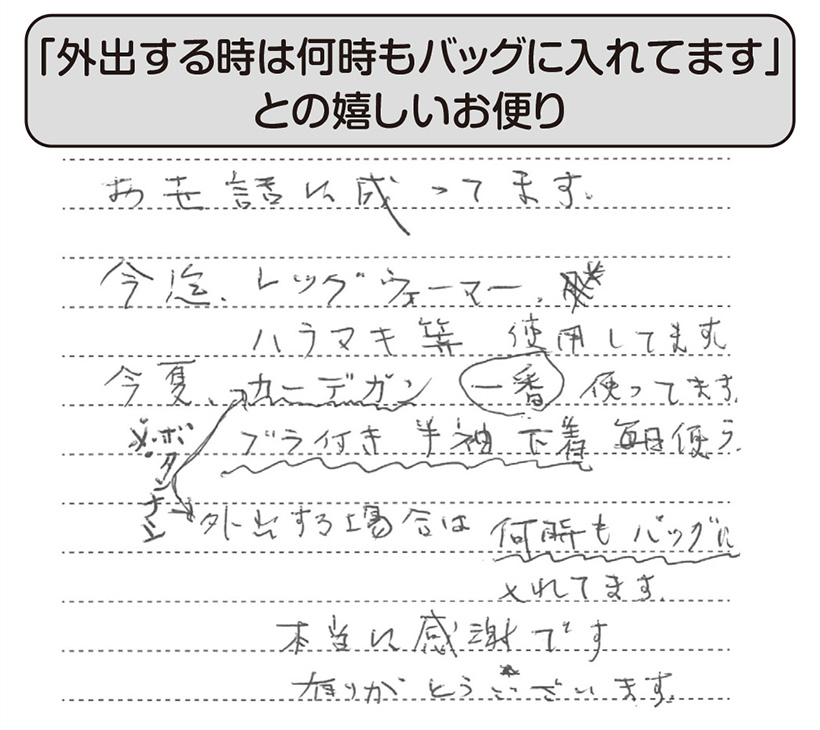 「外出する時は何時もバッグに入れてます」
との嬉しいお便り
お世話に成ってます。
今迄、レッグウォーマー、
ハラマキ等 使用してます
今夏、カーデガン 一番 使ってます。
ブラ付き 半袖 下着 毎日使う。
※ボタンナシ
外出する場合は 何時もバッグに
入れてます。
本当に感謝です
有りがとうございます。